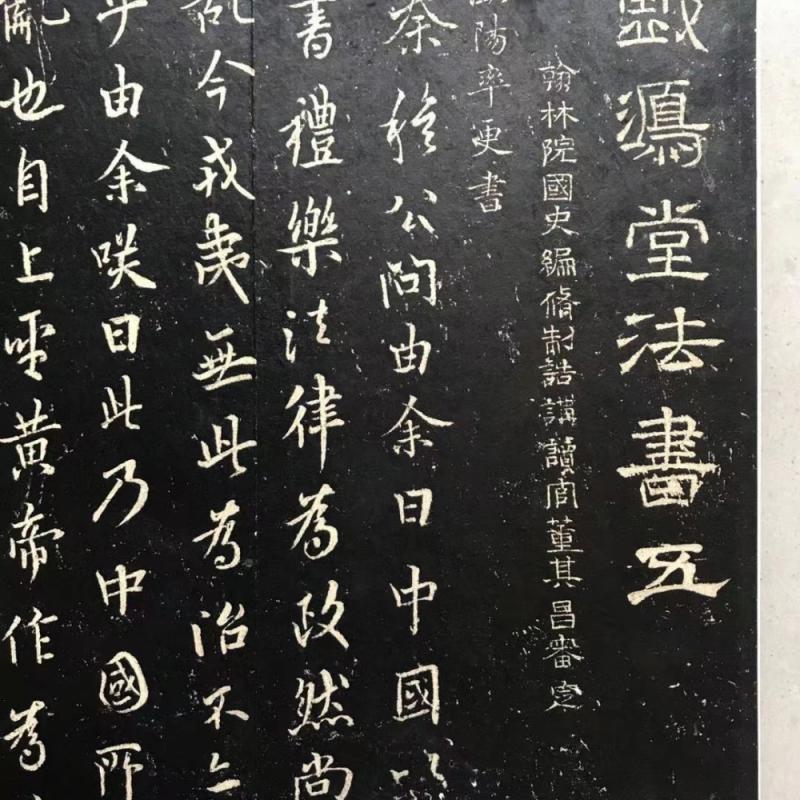 戲鴻堂法書五
翰林院國史編脩制誥講讀官董其昌審定
歐陽率更書
秦穆公問由余曰中國以
書禮樂法律為政然尚
亂今戎夷無此為治不亦
乎由余咲曰此乃中國所
亂也自上聖黃帝作為